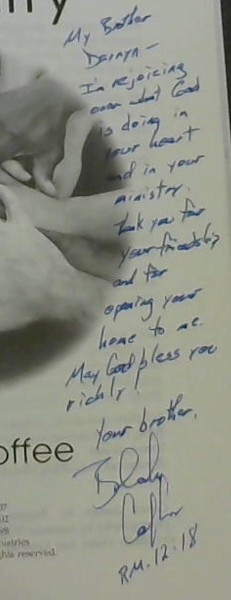 My Brother
Darryn -
I'm rejoicing
over what God
is doing in
your heart
and in your
ministry.
Thank you for
your friendship
and for
opening your
home to me.
May God bless you
richly!
Your brother,
RM. 12:18
offee
ghts reserved.